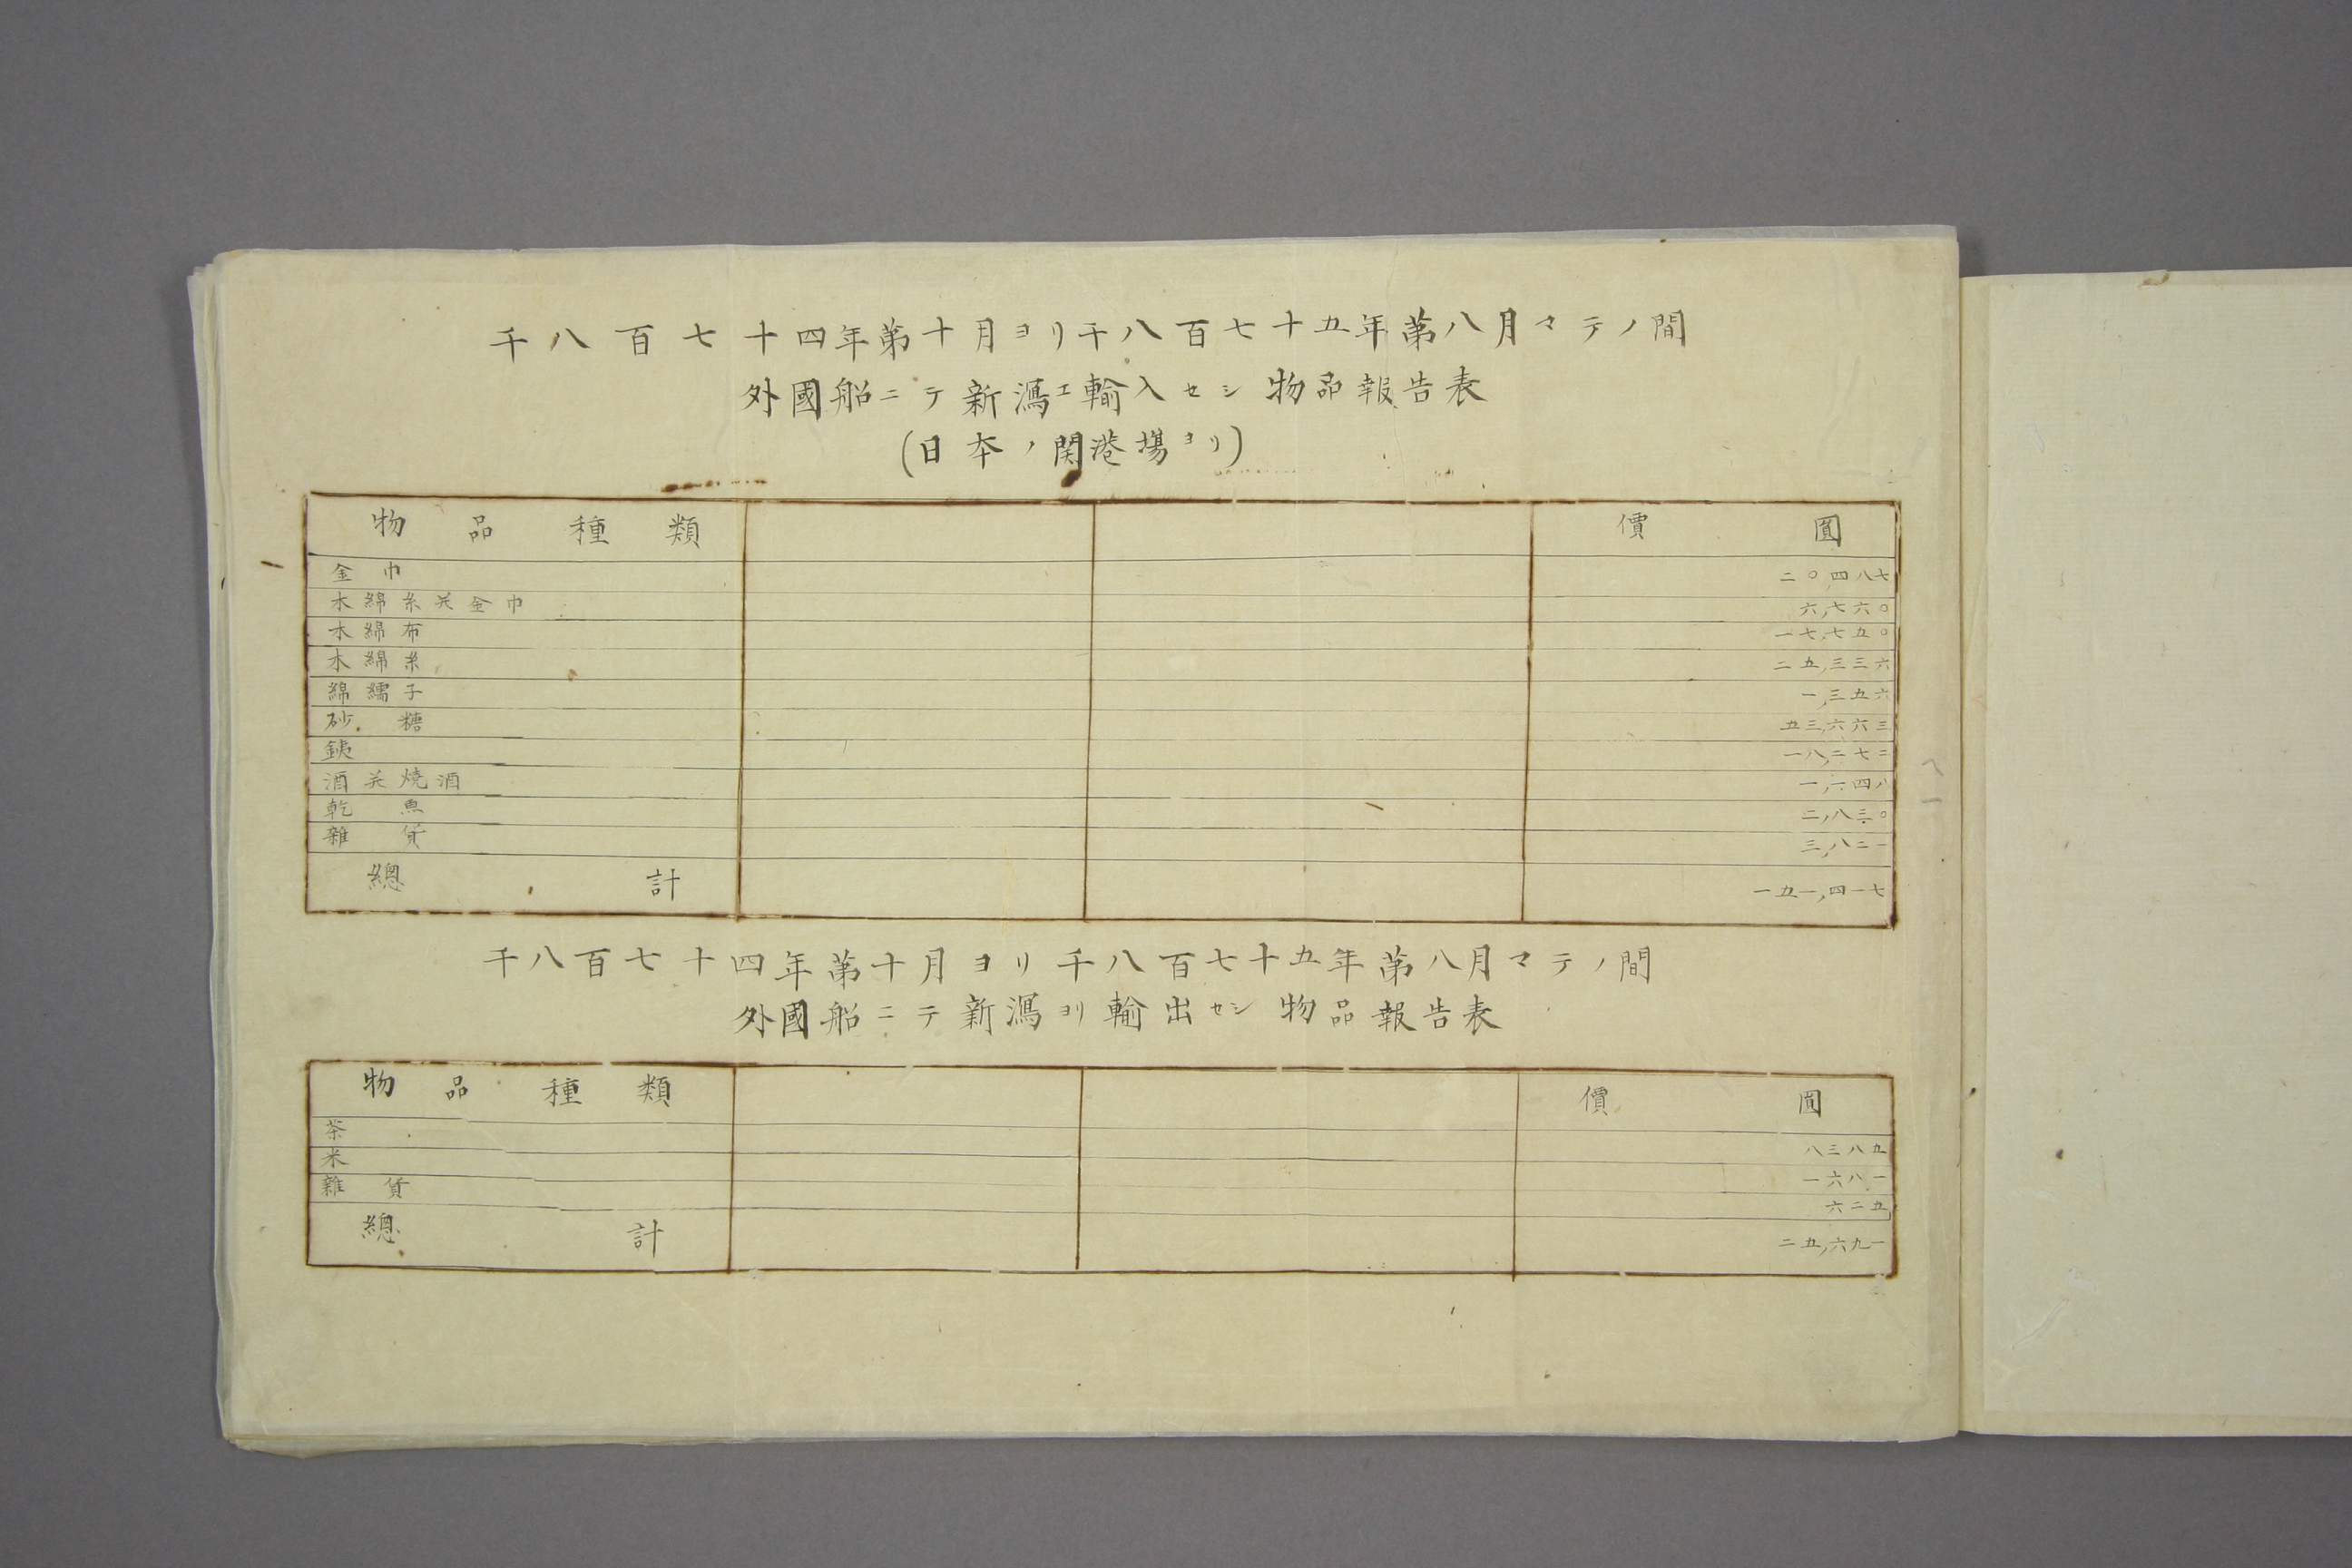 千八百七十四年第十月ヨリ千八百七十五年第八月マテノ間
外國船ニテ新潟エ輸入セシ物品報告表
(日本ノ開港場ヨリ)
物品種類 價 圓
金巾 二〇四八七
木綿糸并金巾 六,七六〇
木綿布 一七,七五〇
木綿糸 二五,三三六
綿繻子 一,三五六
砂糖 五三,六六三
銕 一八,二七二
酒并燒酒 一,六四八
乾魚 二,八三〇
雜貨 三,八二一
總計 一五一,四一七
千八百七十四年第十月ヨリ千八百七十五年第八月マテノ間
外國船ニテ新潟ヨリ輸出セシ物品報告表
物品種類 價 圓
茶 八三八五
米 一六八一
雜貨 六二五
總計 二五,六九一